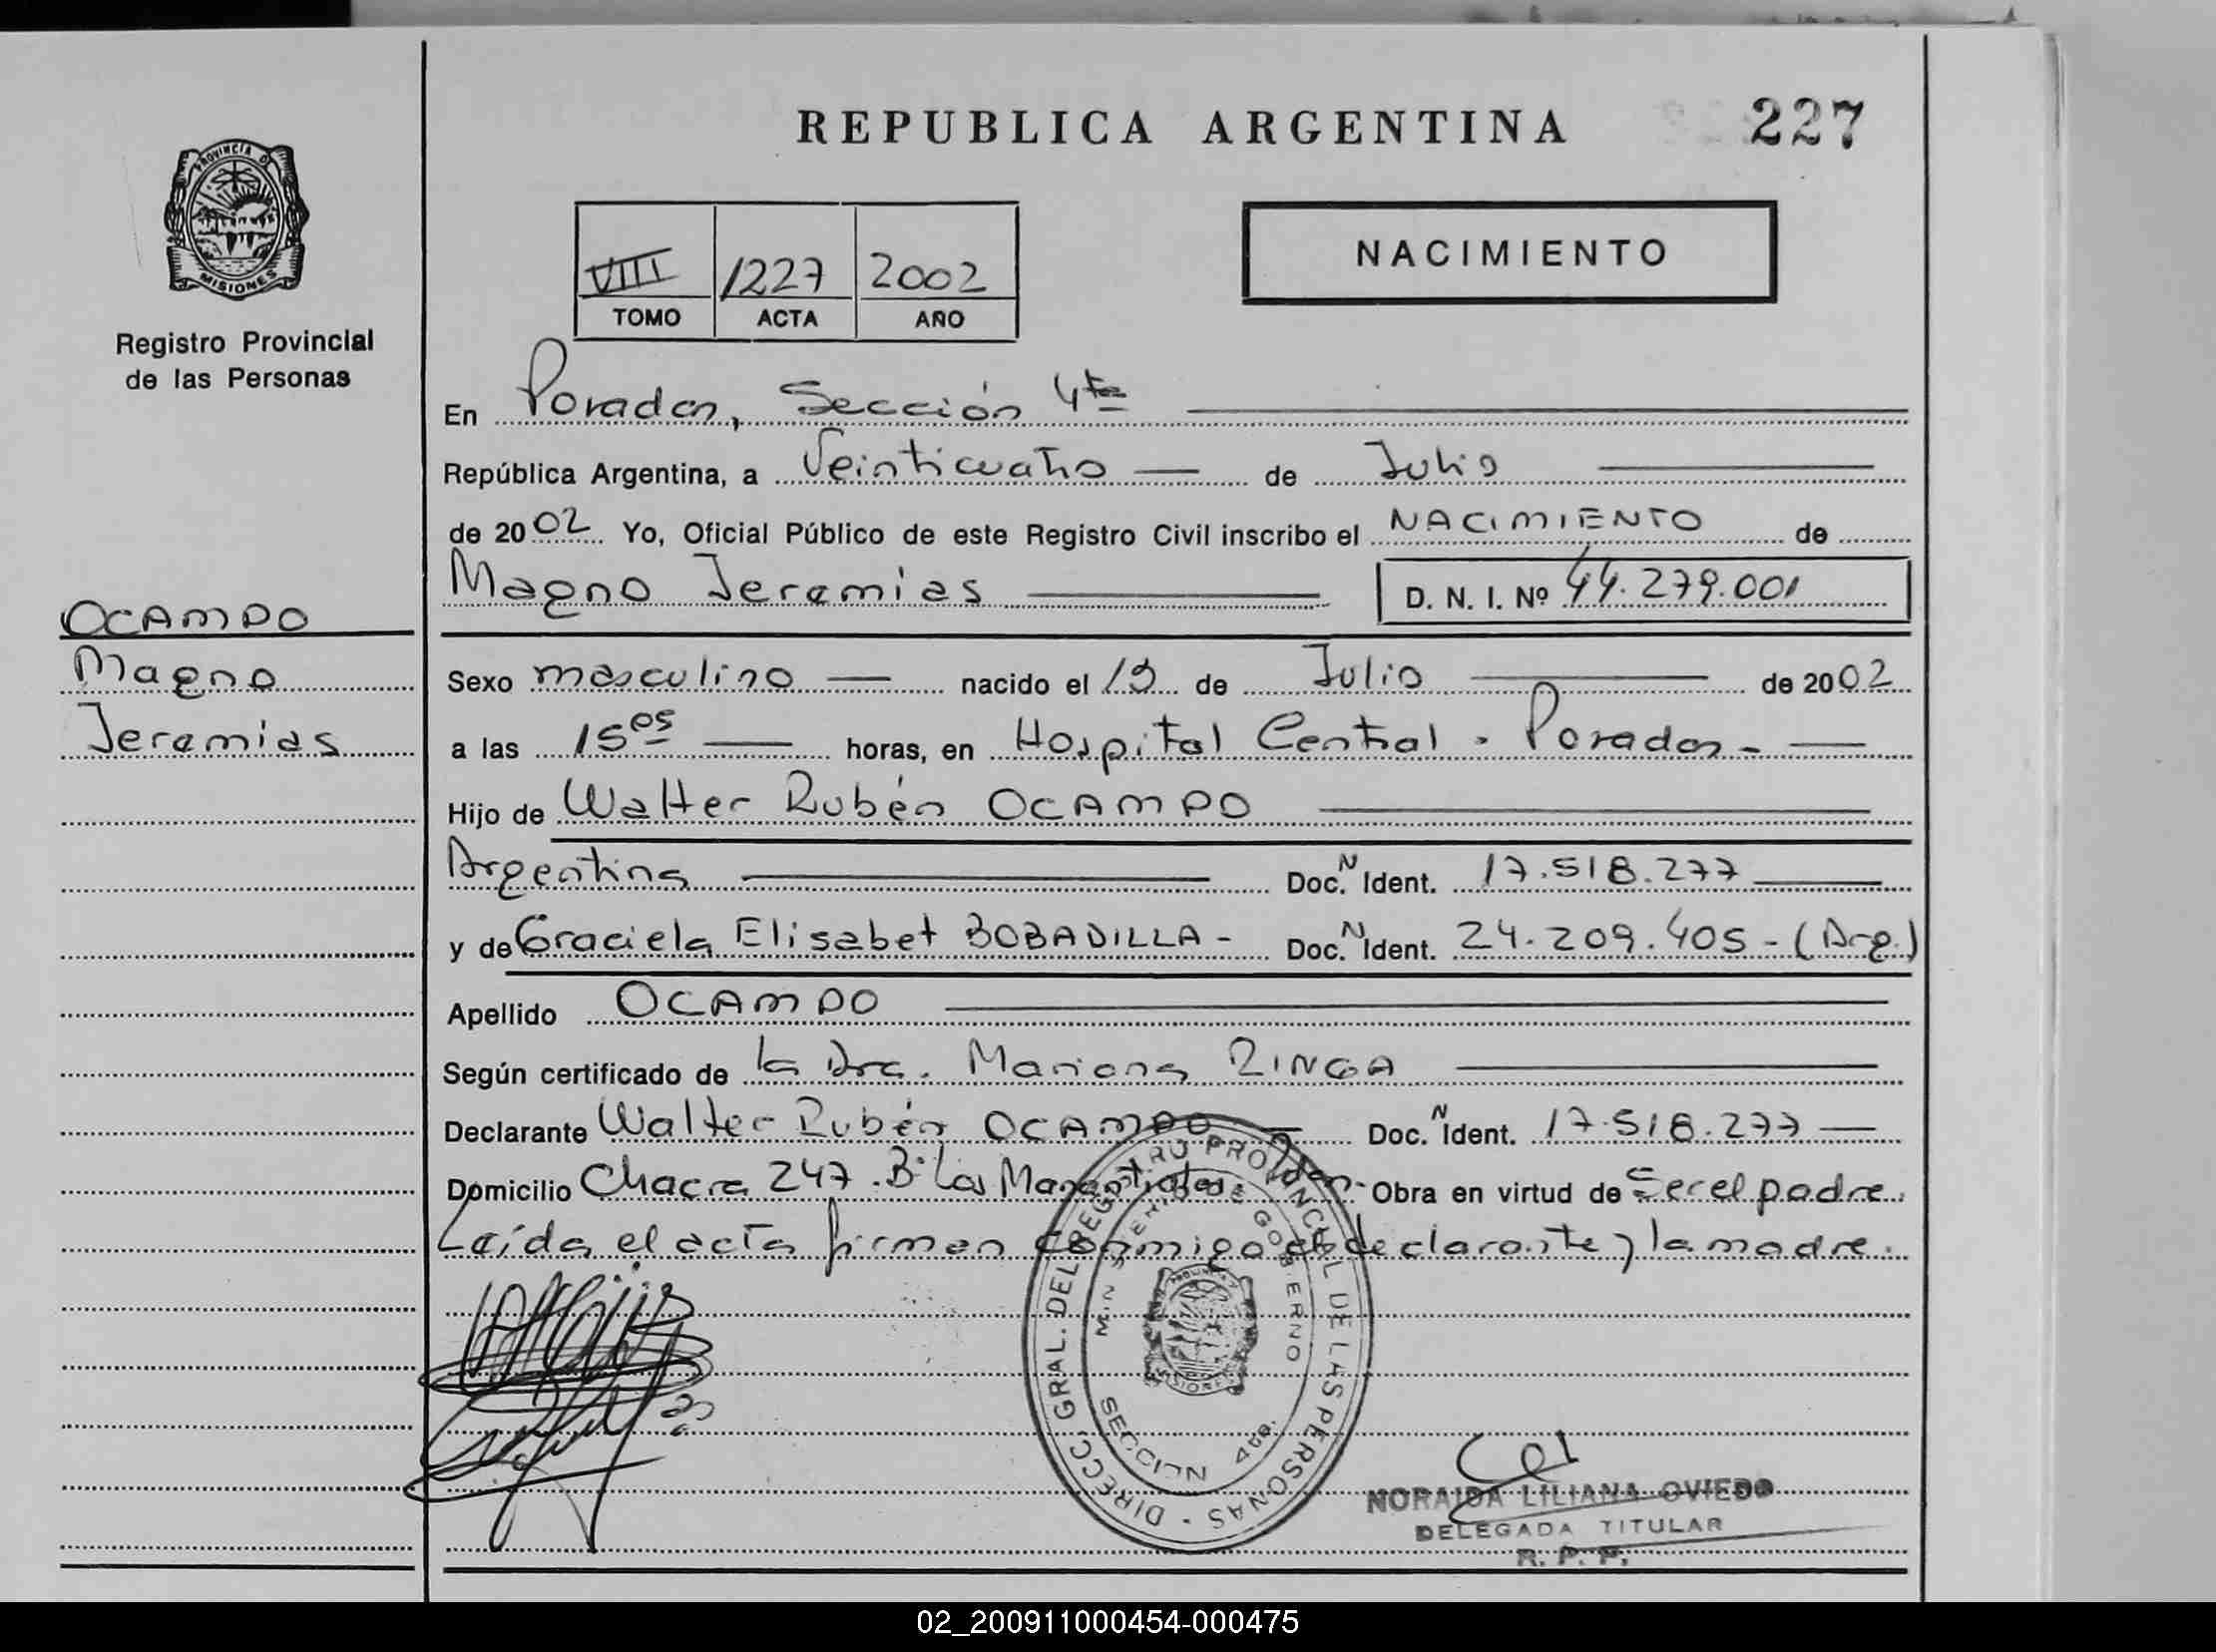 REPUBLICA ARGENTINA
227
PROVINCIA DE MISIONES
Registro Provincial
de las Personas
VIII 1227 2002
TOMO ACTA AÑO
NACIMIENTO
En Posadas, Sección 4ta
República Argentina, a Veinticuatro de Julio
de 2002 Yo, Oficial Público de este Registro Civil inscribo el NACIMIENTO de
Magno Jeremías D. N. I. Nº 44.279.001
OCAMPO
Magno
Jeremías
Sexo masculino nacido el 19 de Julio de 2002
a las 15 05 horas, en Hospital Central - Posadas -
Hijo de Walter Rubén OCAMPO
Argentina Doc. N Ident. 17.518.277
y de Graciela Elisabet BOBADILLA - Doc. N Ident. 24.209.405 - (Arg.)
Apellido OCAMPO
Según certificado de la Dra. Mariana RINGA
Declarante Walter Rubén OCAMPO Doc. N Ident. 17.518.277
Domicilio Chacra 247 - Bº Los Manantiales Obra en virtud de Ser el padre.
Leída el acta firman conmigo el declarante y la madre.
DIRECC. GRAL. DEL REGISTRO PROVINCIAL DE LAS PERSONAS
GOBIERNO
SECCION 4ta.
NORAIDA LILIANA OVIEDO
DELEGADA TITULAR
R. P. P.
02_200911000454-000475